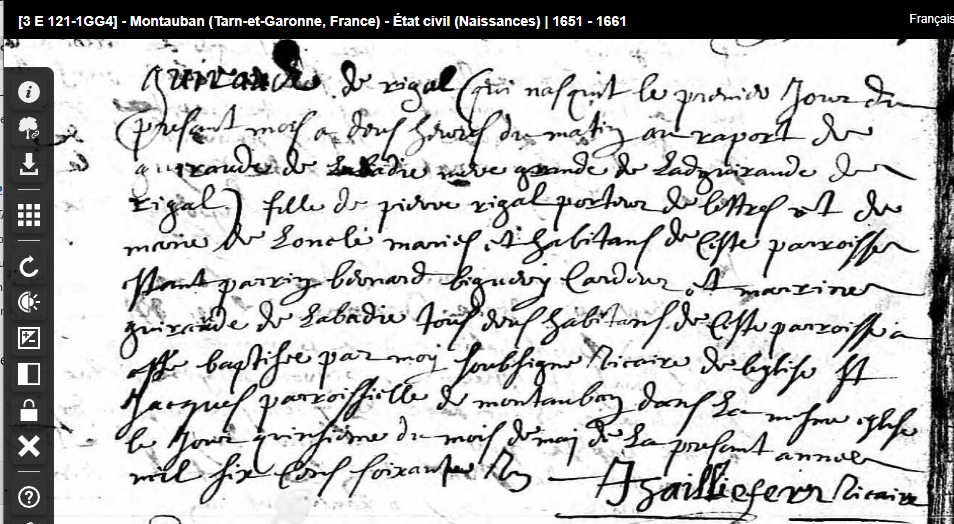 [3 E 121-1GG4] - Montauban (Tarn-et-Garonne, France) - État civil (Naissances) | 1651 - 1661
Français
guiraude de rigal (qui nasquit le premier Jour du
present mois a deus heures du matin au raport de
guiraude de Labadie mere grande de Ladguiraude de
rigal) fille de pierre rigal porteur de lettres et de
marie de maries et habitans de Ceste parroisse
estant parrin bernard Cardeur et marrine
guiraude de Labadie tous deus habitans de Ceste parroisse a
este baptisee par moy soubsigne vicaire de leglise St
Jacques parroissielle de montauban dans La mesme eglise
le Jour quinsieme du mois de may de La present annee
mil six Cens soixante
vicaire